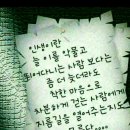 인생이란
늘 이를 악물고
뛰어다니는 사람 보다는
좀 더 늦더라도
착한 마음으로
차분하게 걷는 사람에게
지름길을 열어주는지도
모른다....